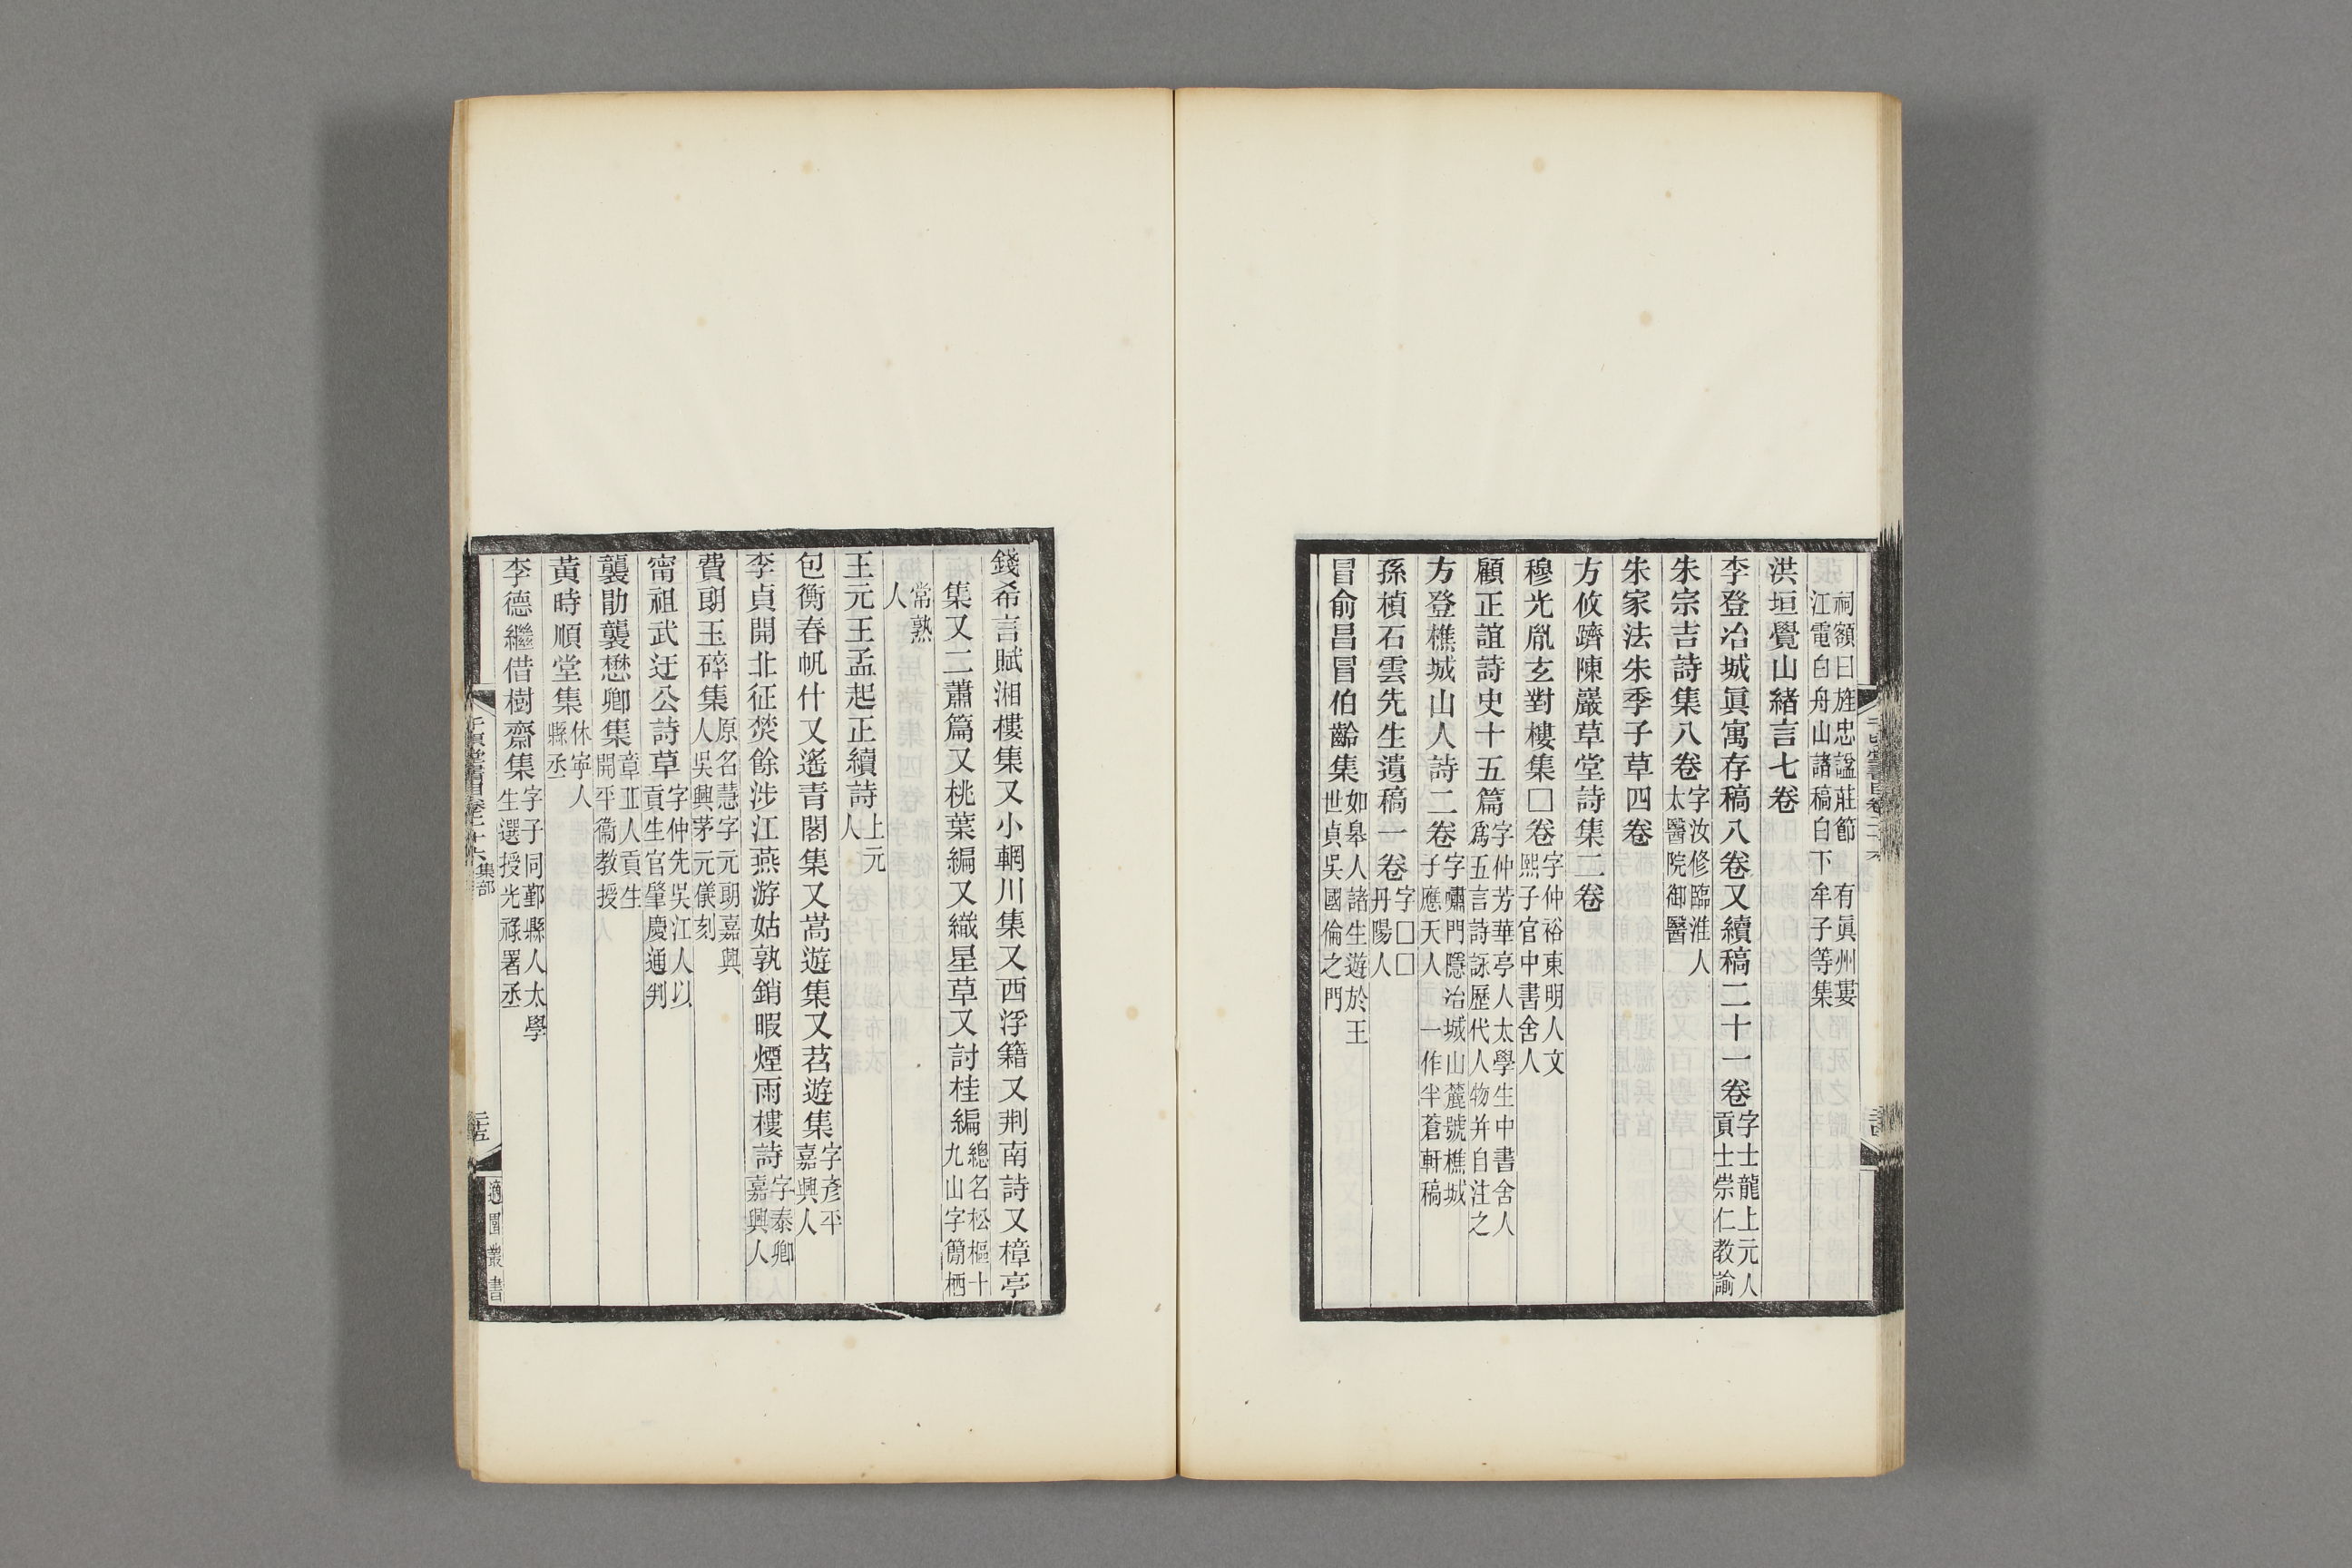 祠額曰旌忠諡莊節　有眞州婁
江電白舟山諸稿白下牟子等集
洪垣覺山緒言七卷
李登冶城眞寓存稿八卷又續稿二十一卷字士龍上元人貢士崇仁教諭
朱宗吉詩集八卷字汝修臨淮人太醫院御醫
朱家法朱季子草四卷
方攸躋陳巖草堂詩集二卷
穆光胤玄對樓集□卷字仲裕東明人文熙子官中書舍人
顧正誼詩史十五篇字仲芳華亭人太學生中書舍人爲五言詩詠歷代人物并自注之
方登樵城山人詩二卷字嘯門隱冶城山麓號樵城子應天人　一作半蒼軒稿
孫楨石雲先生遺稿一卷字□□丹陽人
冒俞昌冒伯齡集如皋人諸生遊於王世貞吳國倫之門
錢希言賦湘樓集又小輞川集又西浮籍又荆南詩又樟亭
集又二蕭篇又桃葉編又織星草又討桂編總名松樞十九山字簡栖
常熟人
王元王孟起正續詩上元人
包衡春帆什又遙青閣集又嵩遊集又苕遊集字彥平嘉興人
李貞開北征焚餘涉江燕游姑孰銷暇煙雨樓詩字泰卿嘉興人
費朗玉碎集原名慧字元朗嘉興人吳興茅元儀刻
甯祖武迂公詩草字仲先吳江人以貢生官肇慶通判
龔勛龔懋卿集章丘人貢生開平衞教授
黃時順堂集休寧人縣丞
李德繼借樹齋集字子同鄞縣人太學生選授光祿署丞
千頃堂書目卷二十六集部
二十五
適園叢書